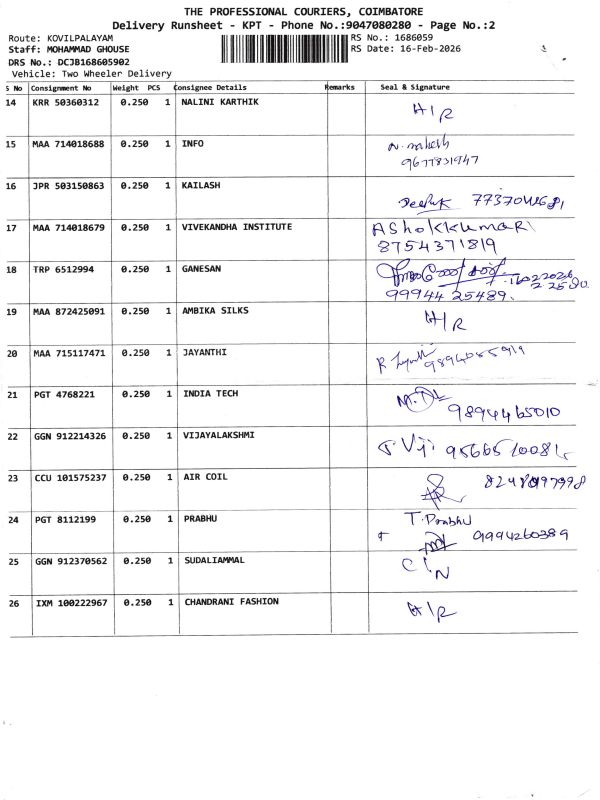 THE PROFESSIONAL COURIERS, COIMBATORE
Delivery Runsheet - KPT - Phone No.:9047080280 - Page No.:2
Route: KOVILPALAYAM RS No.: 1686059
Staff: MOHAMMAD GHOUSE RS Date: 16-Feb-2026
DRS No.: DCJB168605902
Vehicle: Two Wheeler Delivery
S No Consignment No Weight PCS Consignee Details Remarks Seal & Signature
14 KRR 50360312 0.250 1 NALINI KARTHIK H/R
15 MAA 714018688 0.250 1 INFO
9677831947
16 JPR 503150863 0.250 1 KAILASH Deepak
17 MAA 714018679 0.250 1 VIVEKANDHA INSTITUTE AShokkumar
8754371819
18 TRP 6512994 0.250 1 GANESAN
99944 25489.
19 MAA 872425091 0.250 1 AMBIKA SILKS H/R
20 MAA 715117471 0.250 1 JAYANTHI
21 PGT 4768221 0.250 1 INDIA TECH 9894465010
22 GGN 912214326 0.250 1 VIJAYALAKSHMI Viji
23 CCU 101575237 0.250 1 AIR COIL
24 PGT 8112199 0.250 1 PRABHU T. Prabhu
9994260389
25 GGN 912370562 0.250 1 SUDALIAMMAL C/N
26 IXM 100222967 0.250 1 CHANDRANI FASHION H/R